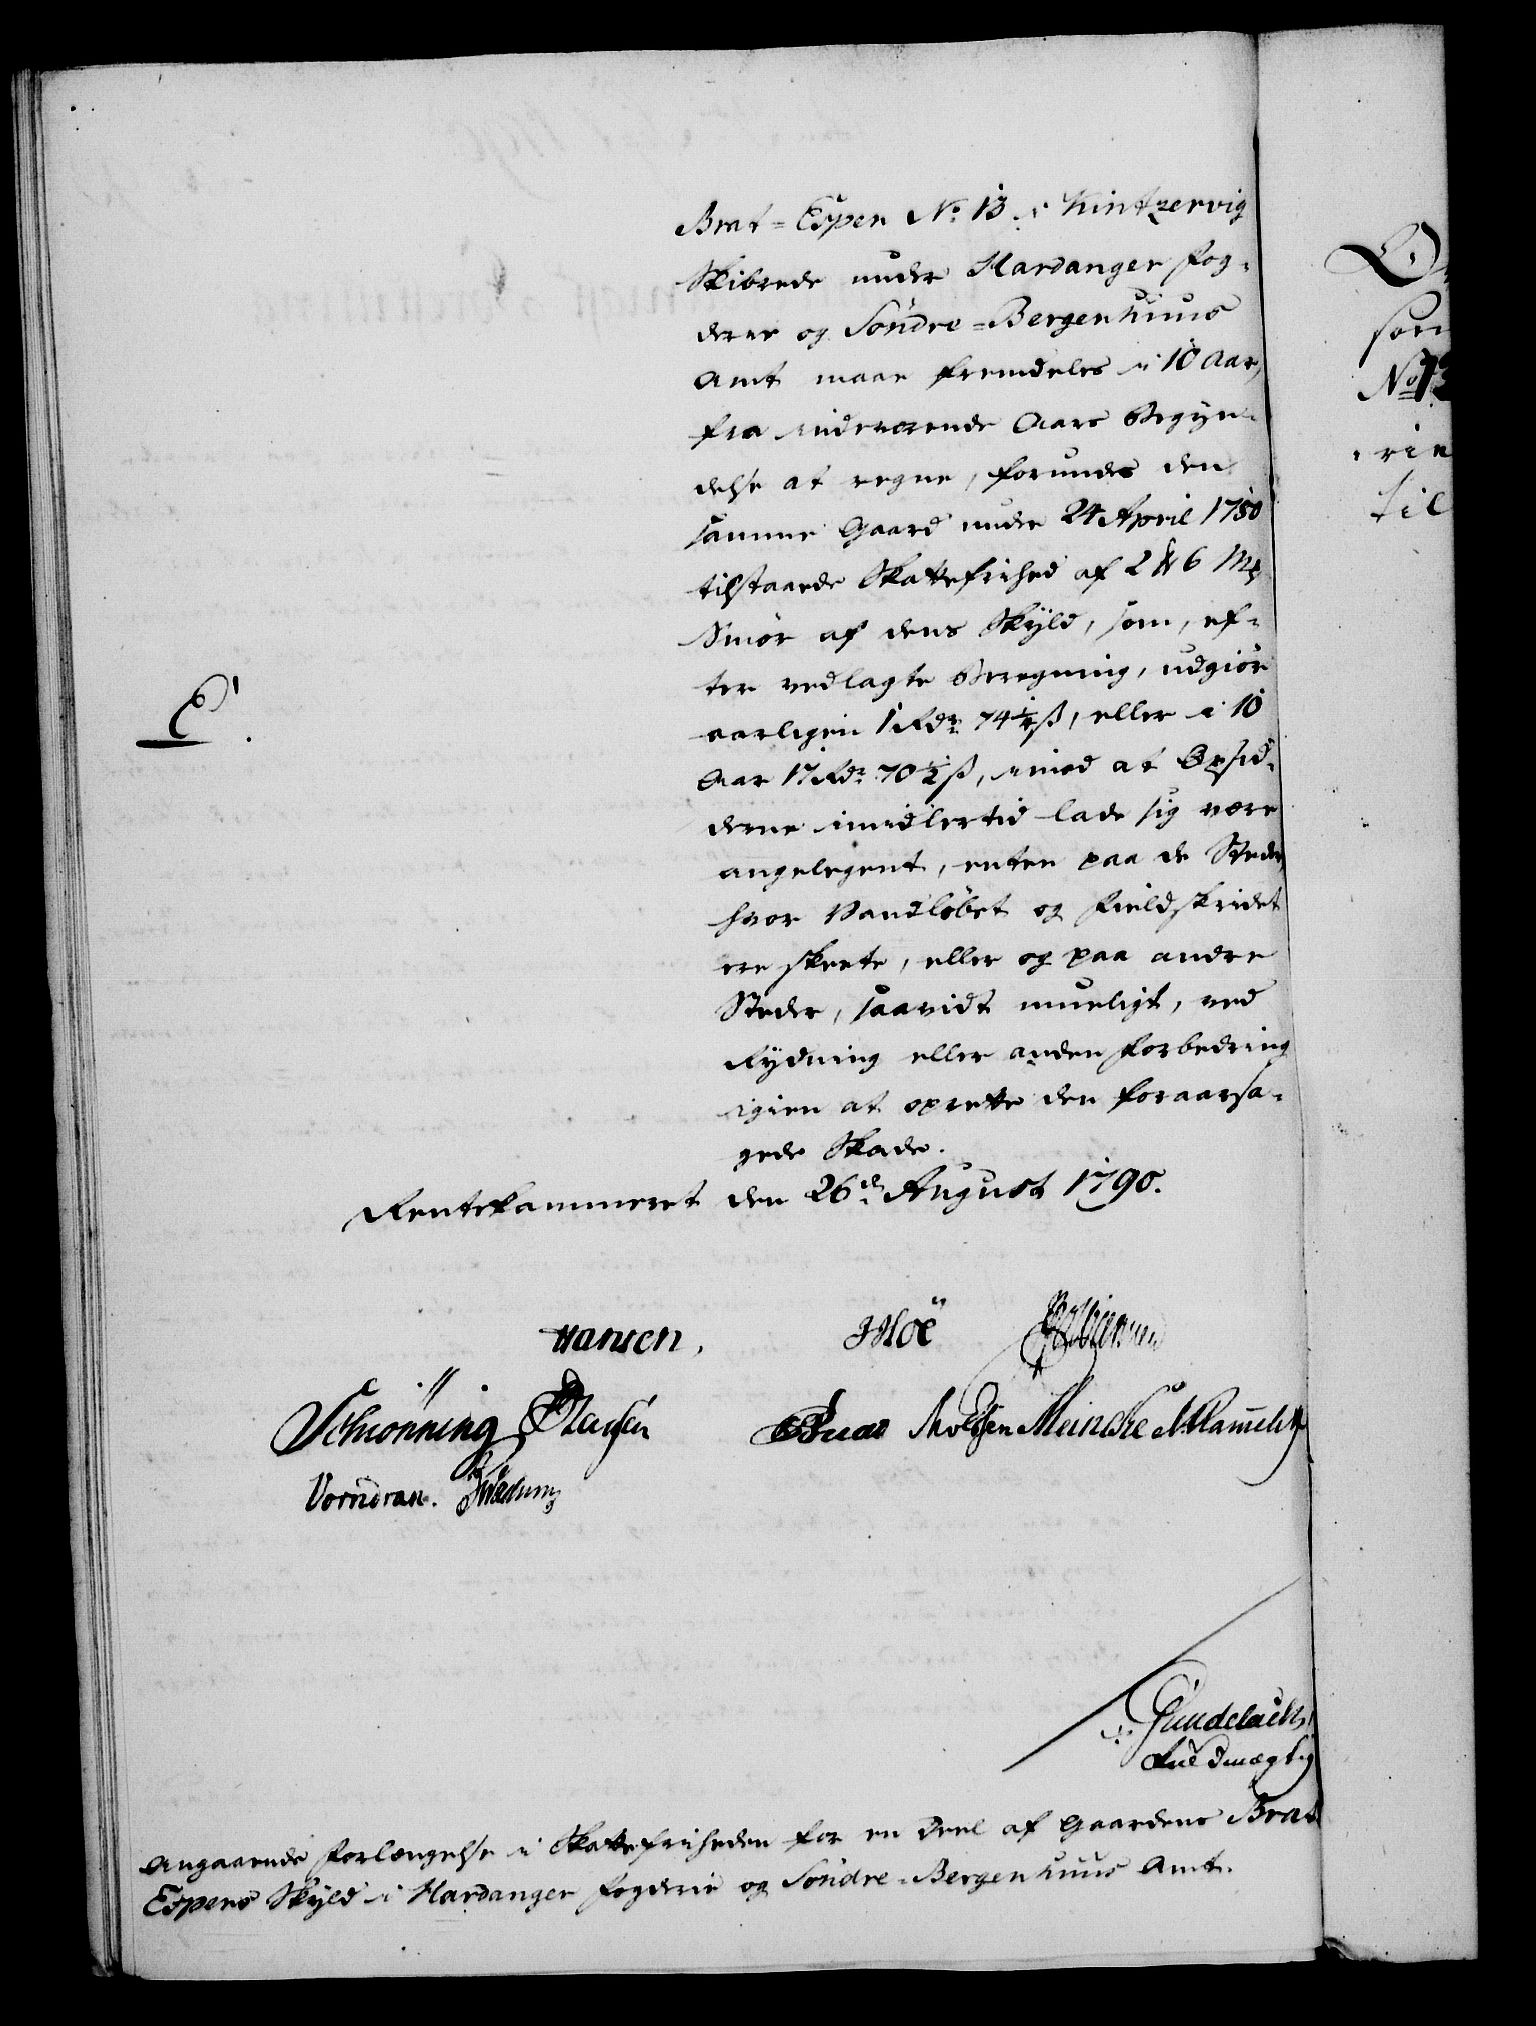 Brat=Espen No 13 i Kintzervig
Skibrede under Hardanger Fog-
derie og Söndre=Bergenhuus
Amt maae fremdeles i 10 Aar,
fra indeværende Aars Begyn-
delse at regne, forundes den
samme Gaard under 24 April 1780
tilstaaede Skattefrihed af 2 6 Mk
Smör af dens Skyld, som, ef-
ter vedlagte Beregning, udgiör
aarligen 1 Rdr 74 1/4 ß, eller i 10
Aar 17 Rdr 70 1/2 ß, imod at Opsid-
derne imidlertid lade sig være
angelegent, enten paa de Steder,
hvor Vandløbet og Fieldskridet
ere skeete, eller og paa andre
Steder, saavidt mueligt, ved
Rydning eller anden Forbedring
igien at oprette den foraarsa-
gede Skade.
E.
Rentekammeret den 26de August 1790.
Hansen, JMöe
Schiönning Meincke
Vorndran.
Gundelach,
Fuldmægtig
Angaaende Forlængelse i Skattefriheden for en Deel af Gaardens Brat
Espens Skyld i Hardanger Fogderie og Söndre=Bergenhuus Amt.
som
til